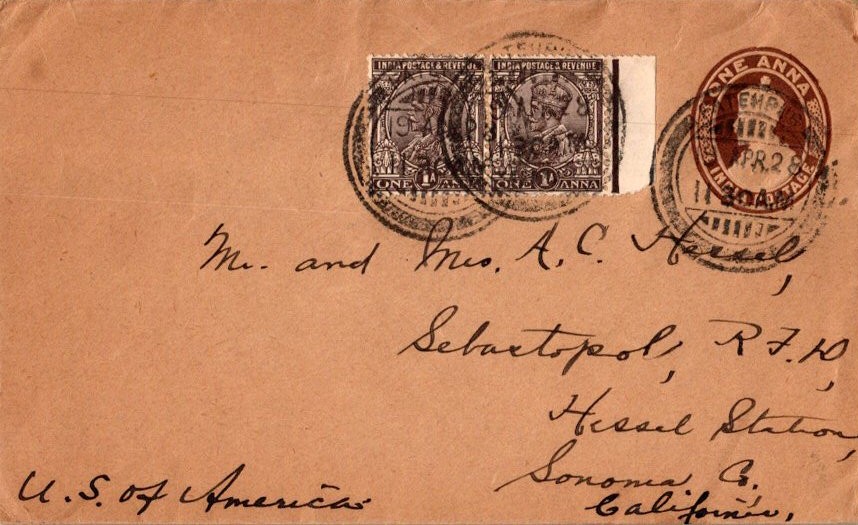 INDIA POSTAGE & REVENUE
ONE 1A ANNA
INDIA POSTAGE & REVENUE
ONE 1A ANNA
ONE ANNA
INDIA POSTAGE
TEHRI
APR. 28
11 30 AM
Mr. and Mrs. A. C. Hessel,
Sebastopol, R F. D,
Hessel Station,
Sonoma Co,
California,
U. S. of America